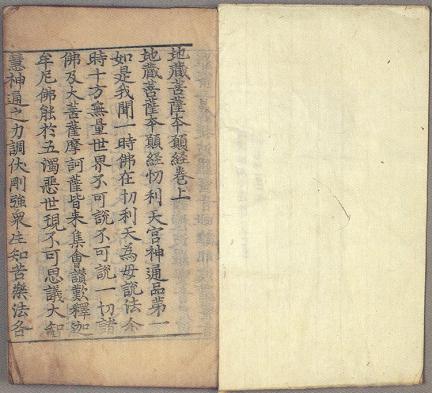 地藏菩薩夲願經卷上
地藏菩薩夲願經忉利天宮神通品第一
如是我聞一時佛在忉利天為母說法尒
時十方無量世界不可說不可說一切諸
佛及大菩薩摩訶薩皆来集會讃歎釋迦
牟尼佛能於五濁惡世現不可思議大智
慧神通之力調伏剛強衆生知苦樂法各